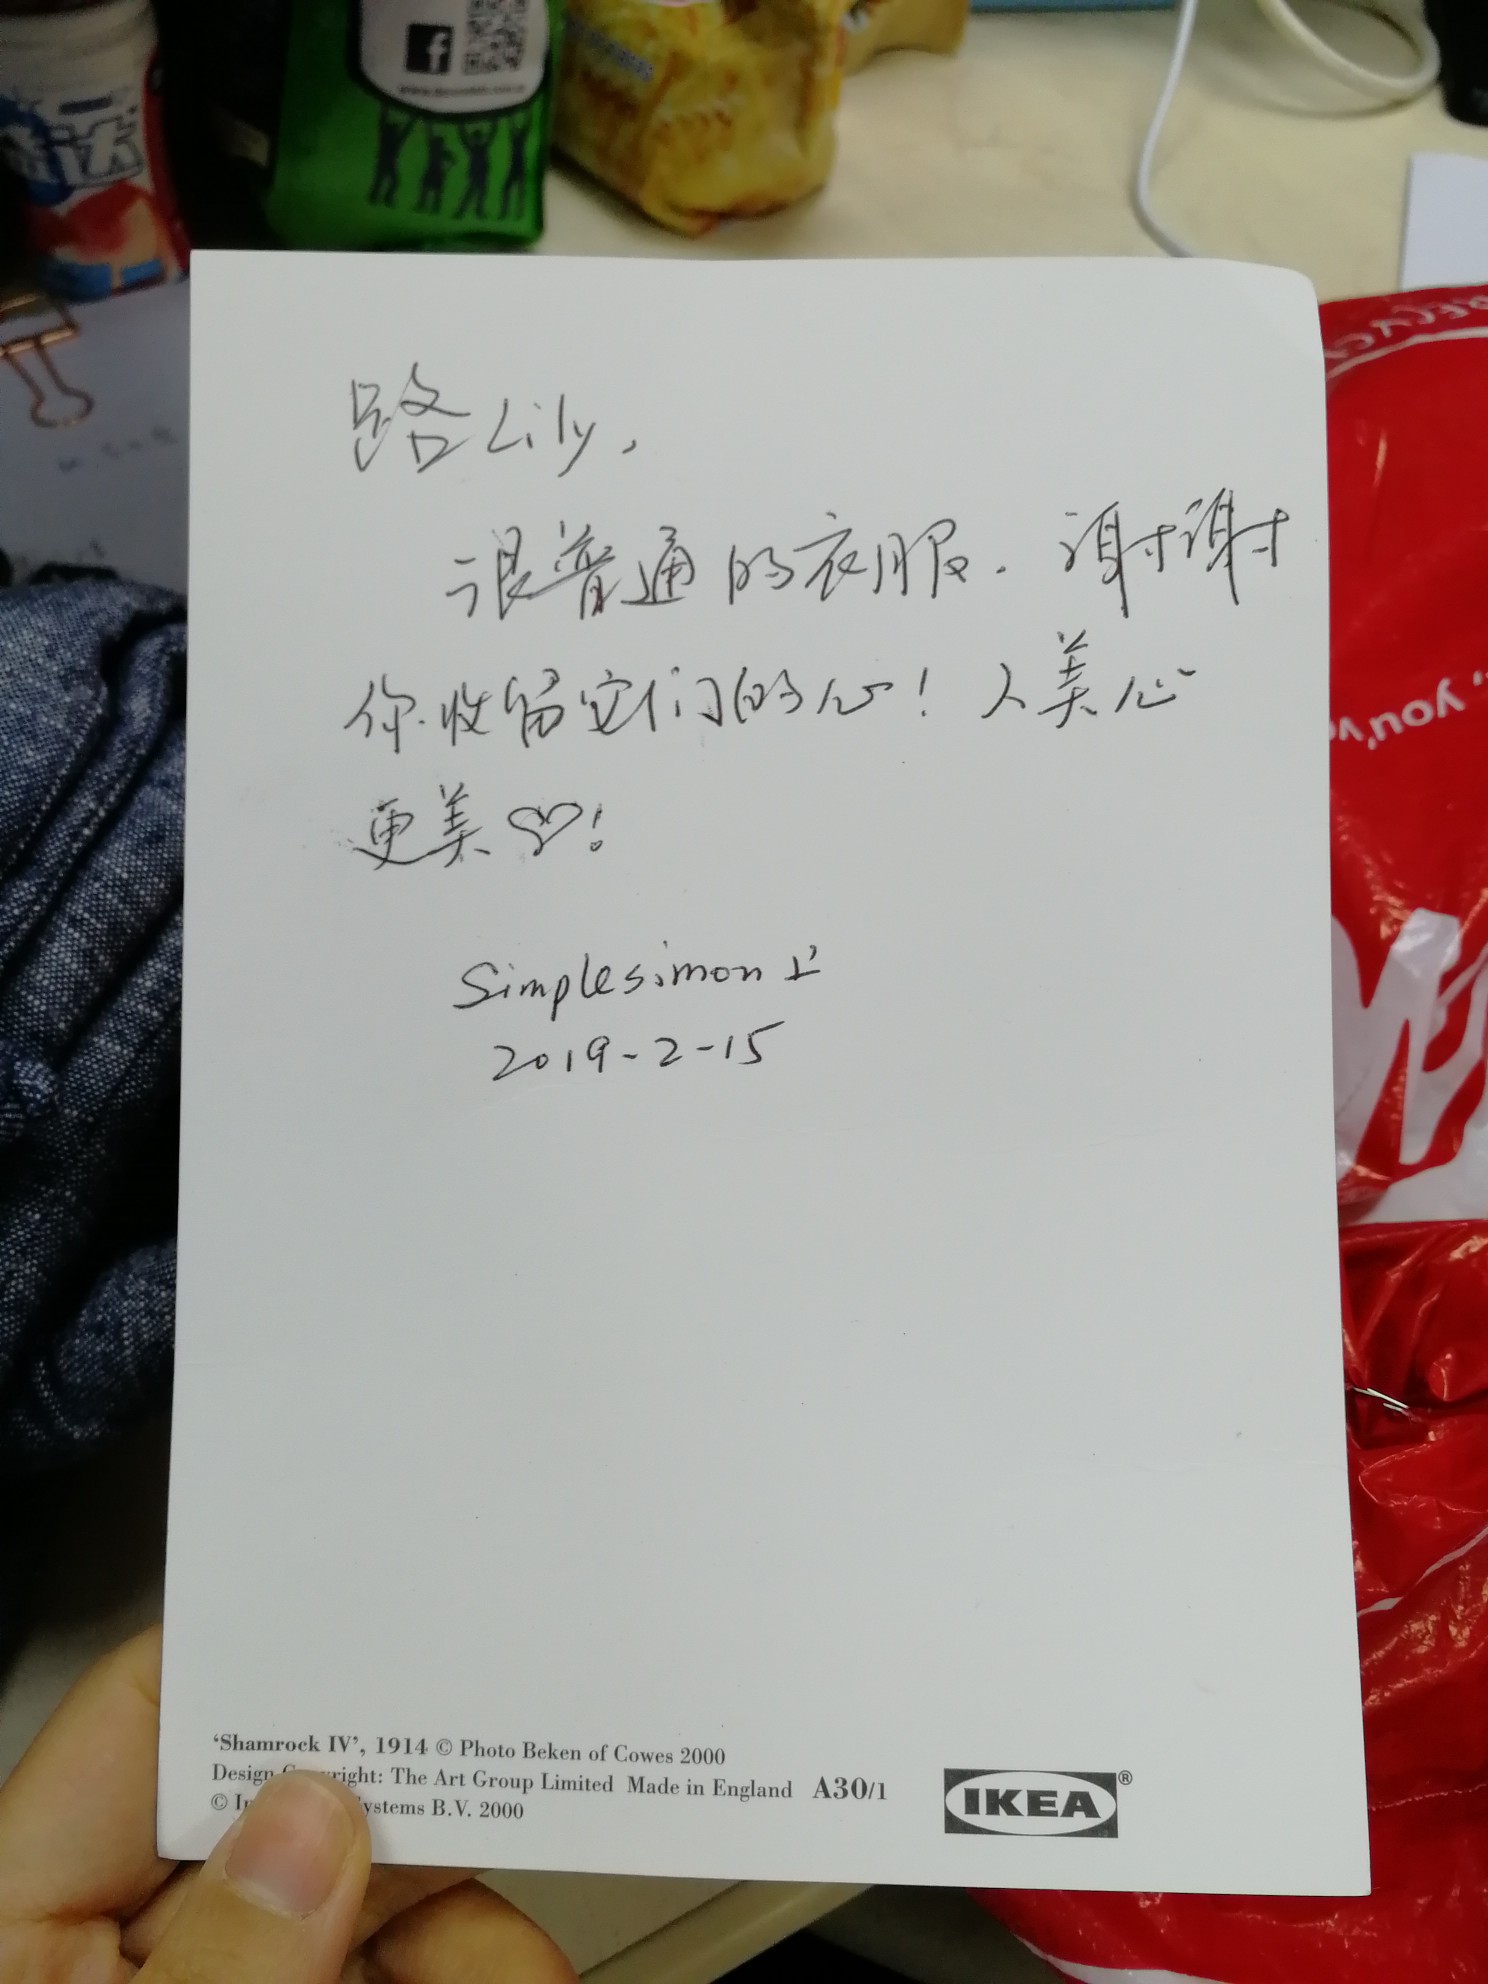 路Lily,
很普通的衣服. 谢谢
你收留它们的心! 人美心
更美♡!
Simplesimon上
2019-2-15
'Shamrock IV', 1914 © Photo Beken of Cowes 2000
Design Copyright: The Art Group Limited Made in England A30/1
© ystems B.V. 2000
IKEA®
f
you'v